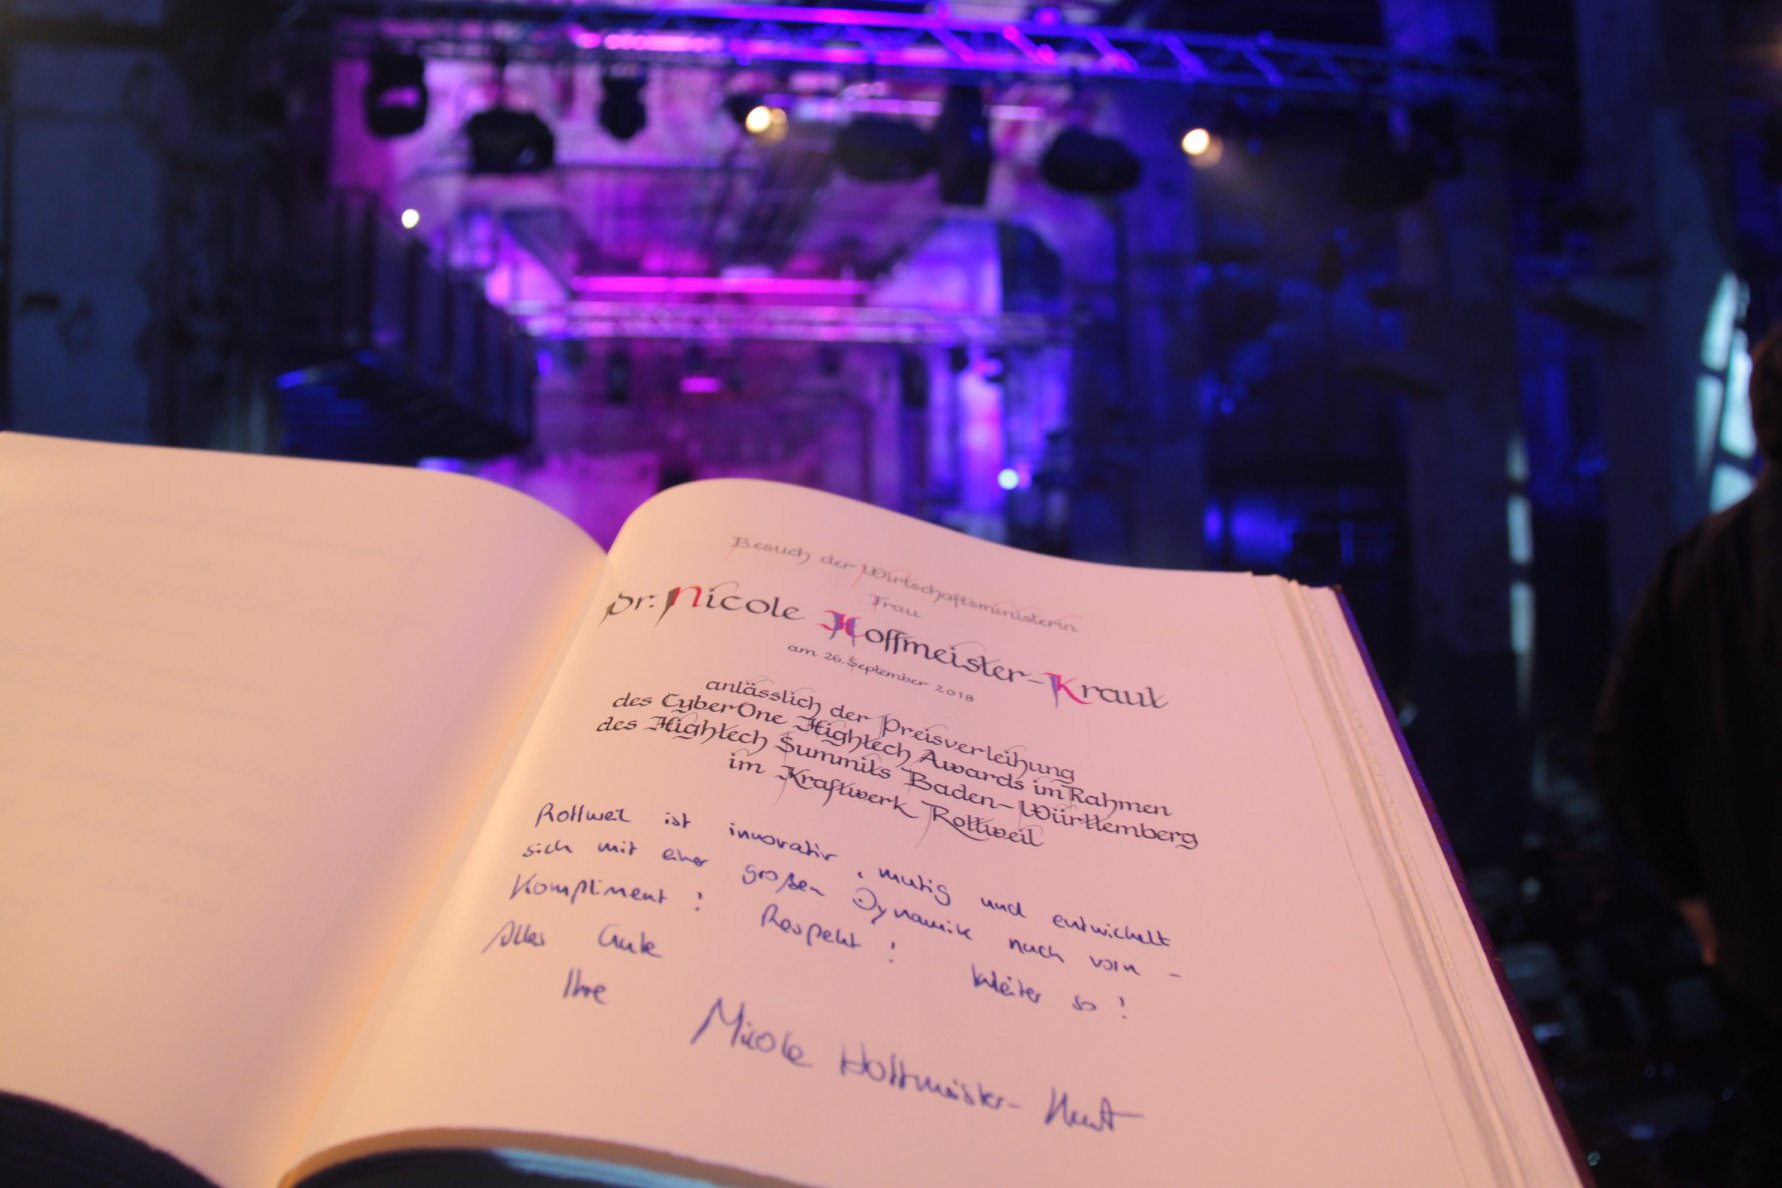 Besuch der Wirtschaftsministerin
Frau
Dr. Nicole Hoffmeister-Kraut
am 26. September 2018
anlässlich der Preisverleihung
des CyberOne Hightech Awards im Rahmen
des Hightech Summits Baden-Württemberg
im Kraftwerk Rottweil
Rottweil ist innovativ, mutig und entwickelt
sich mit einer großen Dynamik nach vorn -
Kompliment! Respekt! Weiter so!
Alles Gute
Ihre
Nicole Hoffmeister-Kraut